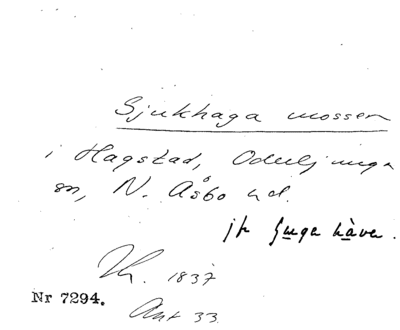 Sjukhaga mossen
i Hagstad, Oderljunga
sn, N. Åsbo hd.
jfr håva.
1837
Nr 7294.
Ant 33